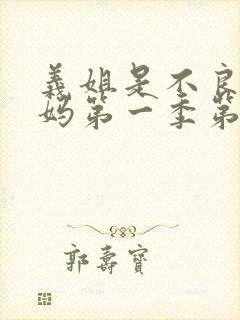 義姐是不良
妈第一季第
郭壽寶